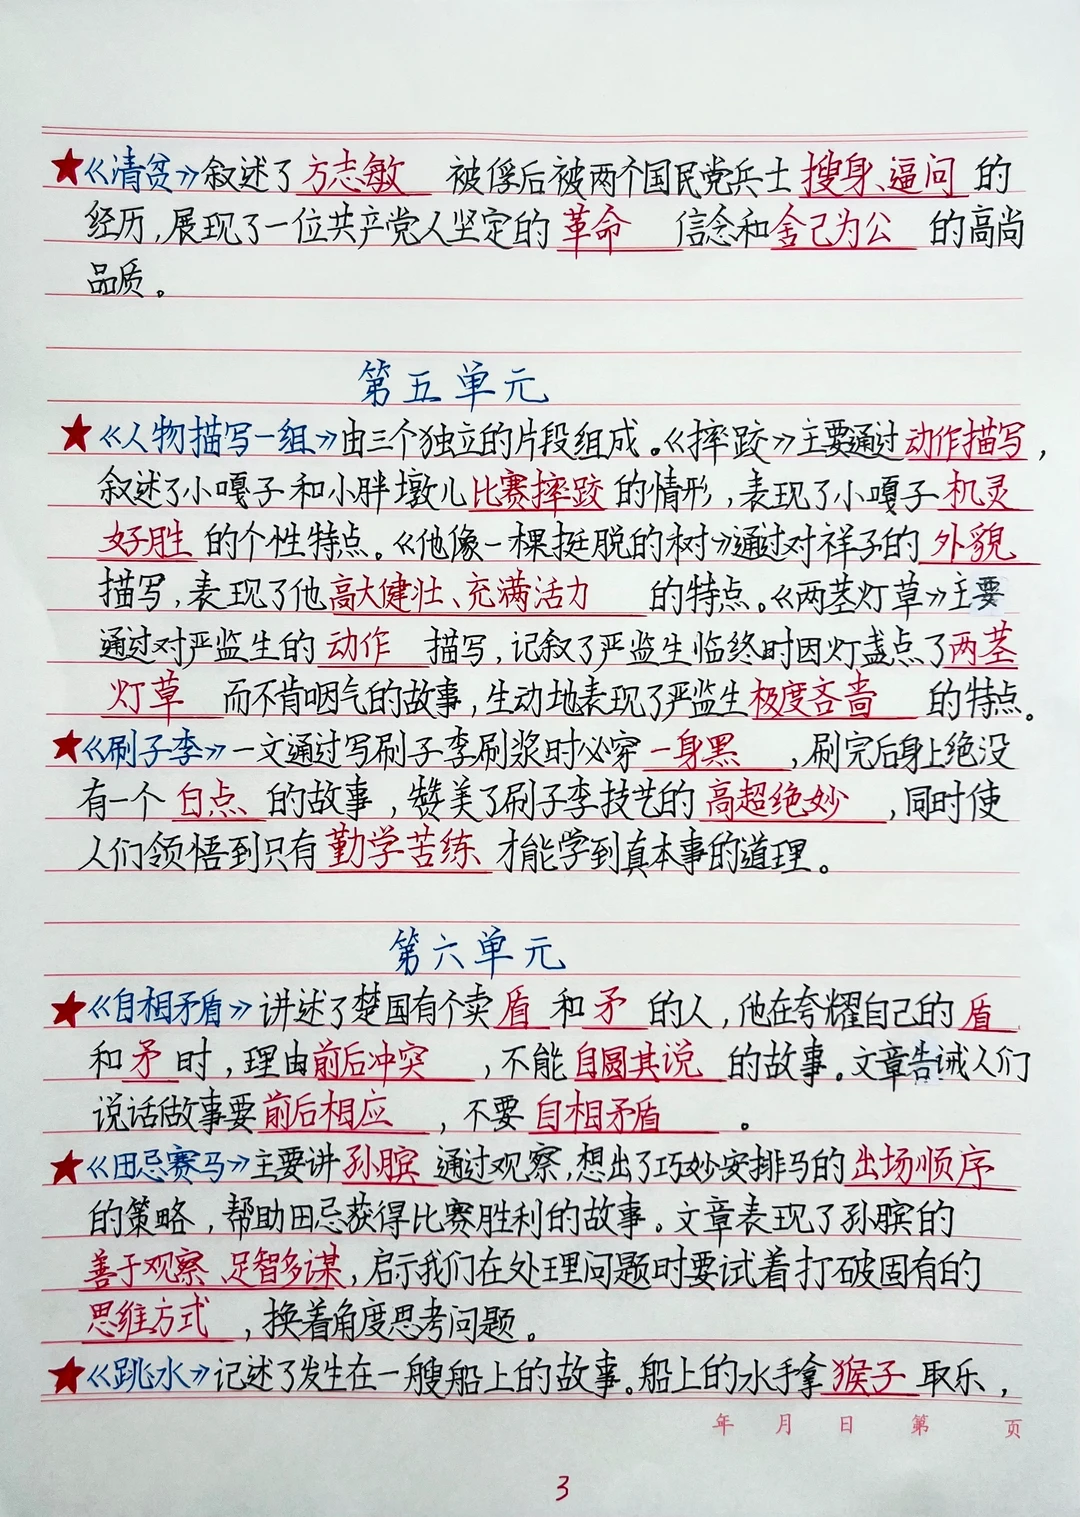 ★《清贫》叙述了方志敏 被俘后被两个国民党兵士搜身、逼问的
经历,展现了一位共产党人坚定的革命 信念和舍己为公 的高尚
品质。
第五单元
★《人物描写一组》由三个独立的片段组成。《摔跤》主要通过动作描写,
叙述了小嘎子和小胖墩儿比赛摔跤的情形,表现了小嘎子机灵
好胜 的个性特点。《他像一棵挺脱的树》通过对祥子的外貌
描写,表现了他高大健壮、充满活力 的特点。《两茎灯草》主要
通过对严监生的动作 描写,记叙了严监生临终时因灯盏点了两茎
灯草 而不肯咽气的故事,生动地表现了严监生极度吝啬 的特点。
★《刷子李》一文通过写刷子李刷浆时必穿一身黑 ,刷完后身上绝没
有一个 白点 的故事,赞美了刷子李技艺的高超绝妙 ,同时使
人们领悟到只有勤学苦练 才能学到真本事的道理。
第六单元
★《自相矛盾》讲述了楚国有个卖盾 和矛 的人,他在夸耀自己的盾
和矛时,理由前后冲突 ,不能自圆其说 的故事。文章告诫人们
说话做事要前后相应 ,不要自相矛盾 。
★《田忌赛马》主要讲孙膑 通过观察,想出了巧妙安排马的出场顺序
的策略,帮助田忌获得比赛胜利的故事。文章表现了孙膑的
善于观察、足智多谋,启示我们在处理问题时要试着打破固有的
思维方式 ,换着角度思考问题。
★《跳水》记述了发生在一艘船上的故事。船上的水手拿猴子取乐,
年 月 日 第 页
3